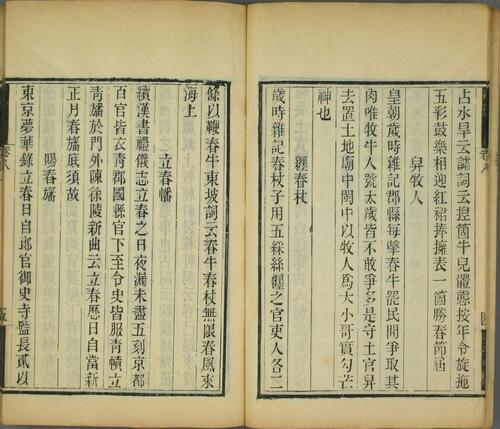 占水旱云謔詞云揑箇牛兒體態按年令旋拖
五彩鼓樂相迎紅裙捧擁表一箇勝春節屆
舁牧人
皇朝歲時雜記郡縣每擊春牛罷民間爭取其
肉唯牧牛人號太歲皆不敢爭多是守土官舁
去置土地廟中閩中以牧人爲大小哥實勾芒
神也
纒春杖
歲時雜記春杖子用五綵絲纒之官吏人各二
條以鞭春牛東坡詞云春牛春杖無限春風來
海上
立春幡
續漢書禮儀志立春之日夜漏未盡五刻京都
百官皆衣靑郡國縣官下至令史皆服靑幘立
靑旛於門外陳徐陵新曲云立春歷日自當新
正月春旛底須故
賜春旛
東京夢華錄立春日自郞官御史寺監長貳以
卷八
五